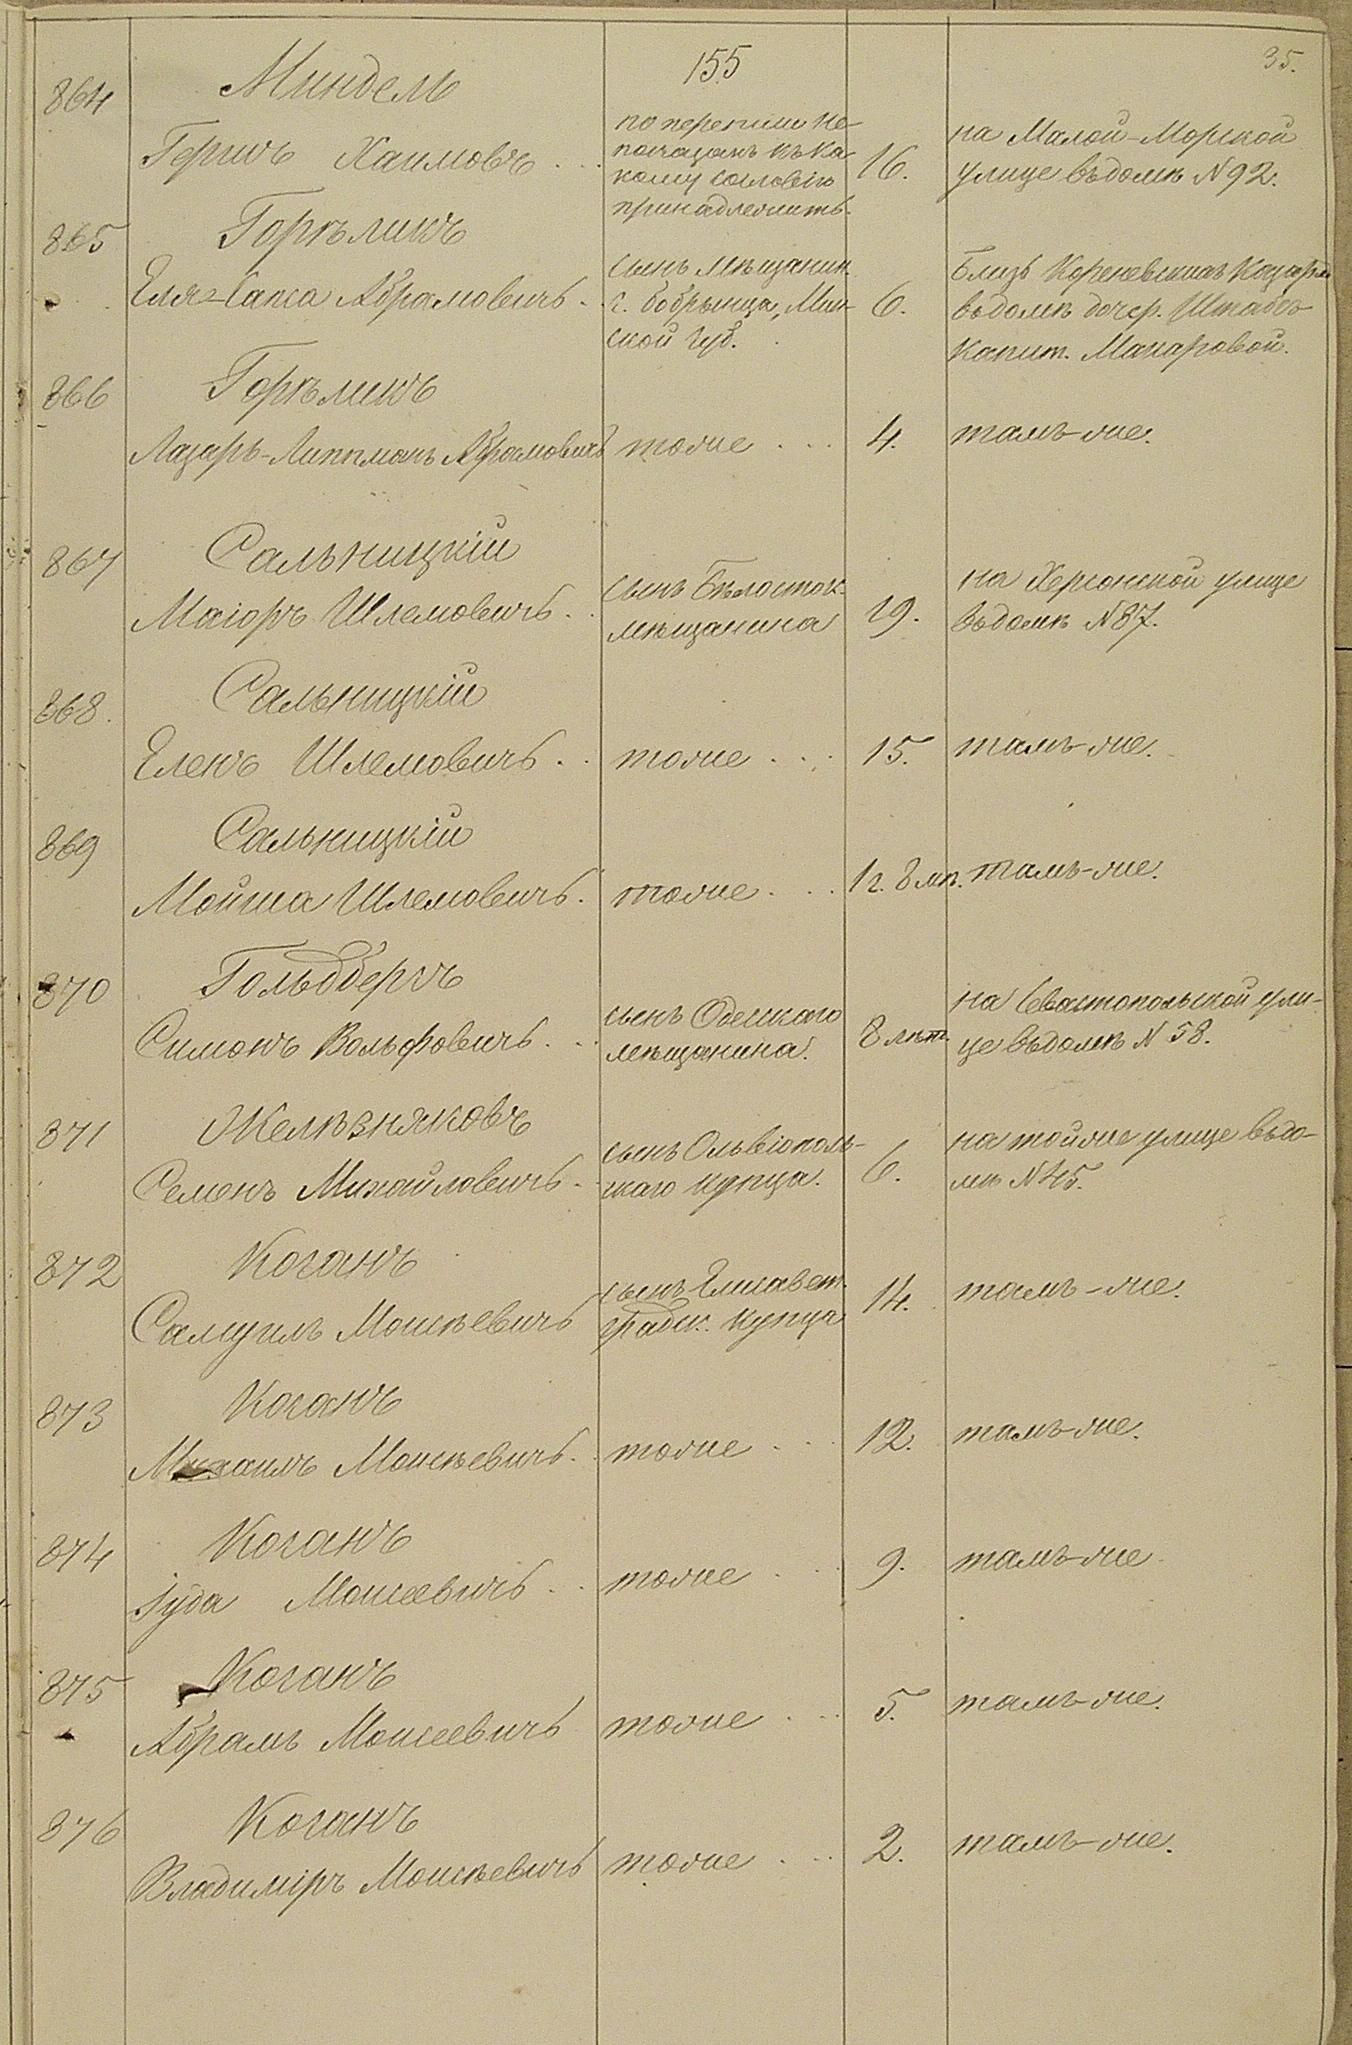 155
35.
864
Миндель
Гершъ Хаимовъ . . .
по переписи не-
показанъ къ ка-
кому сословію
принадлежитъ.
16.
на Малой-Морской
улице въ домѣ N 92.
865
Горѣликъ
Еля-Сапса Абрамовичъ . .
сынъ мѣщанин.
г. Бобрынца, Мин-
ской губ.
6.
Близь Кореневскихъ Казармъ
въ домѣ дочер. Штабсъ
Капит. Макаровой.
866
Горѣликъ
Лазарь-Липпманъ Абрамовичъ
тоже . . .
4.
тамъ-же.
867
Сальницкій
Маіоръ Шлемовичъ . .
сынъ Бѣлосток.
мѣщанина
19.
на Херсонской улице
въ домѣ N 87.
868.
Сальницкій
Еленъ Шлемовичъ . .
тоже . . .
15.
тамъ-же.
869
Сальницкій
Мойша Шлемовичъ .
тоже . . .
1 г. 8 мѣ.
тамъ-же.
870
Гольдбергъ
Симонъ Вольфовичъ . . .
сынъ Одесскаго
мѣщанина.
8 лѣт.
на Севастопольской ули-
це въ домѣ N 58.
871
Желѣзняковъ
Семенъ Михайловичъ .
сынъ Ольвіополь-
скаго купца.
6.
на той же улице въ до-
мѣ N 45.
872
Коганъ
Самуилъ Моисѣевичъ
сынъ Елисавет.
градск. купца
14.
тамъ-же.
873
Коганъ
Михаилъ Моисѣевичъ . .
тоже . . .
12.
тамъ-же.
874
Коганъ
Іуда Моисеевичъ . . .
тоже . . .
9.
тамъ-же.
875
Коганъ
Абрамъ Моисеевичъ
тоже . . .
5.
тамъ-же.
876
Коганъ
Владиміръ Моисѣевичъ
тоже . . .
2.
тамъ-же.